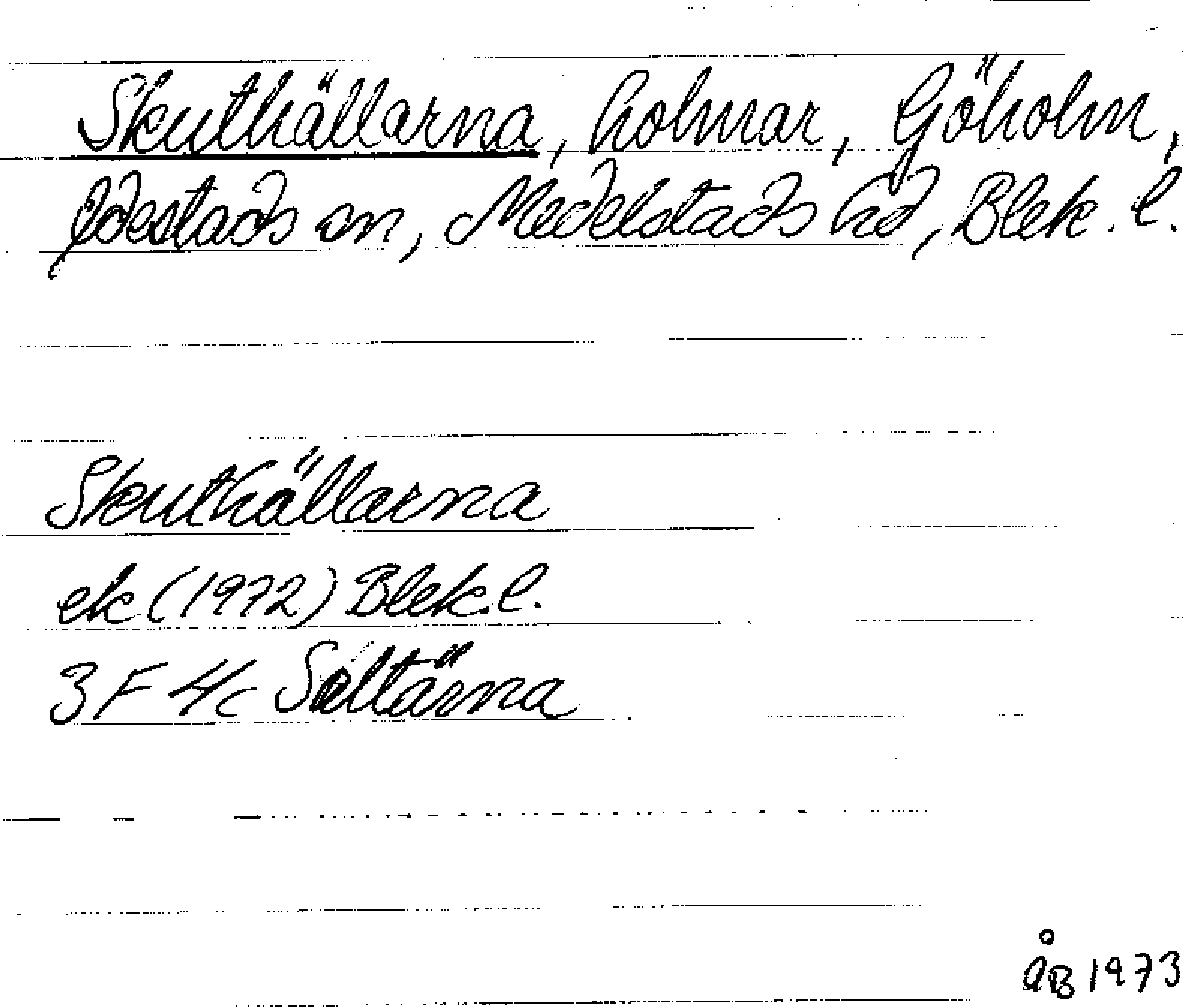 Skuthällarna, holmar, Göholm,
Edestads sn, Medelstads hd, Blek. l.
Skuthällarna
ek (1972) Blek. l.
3 F 4c Saltärna
ÅB 1973